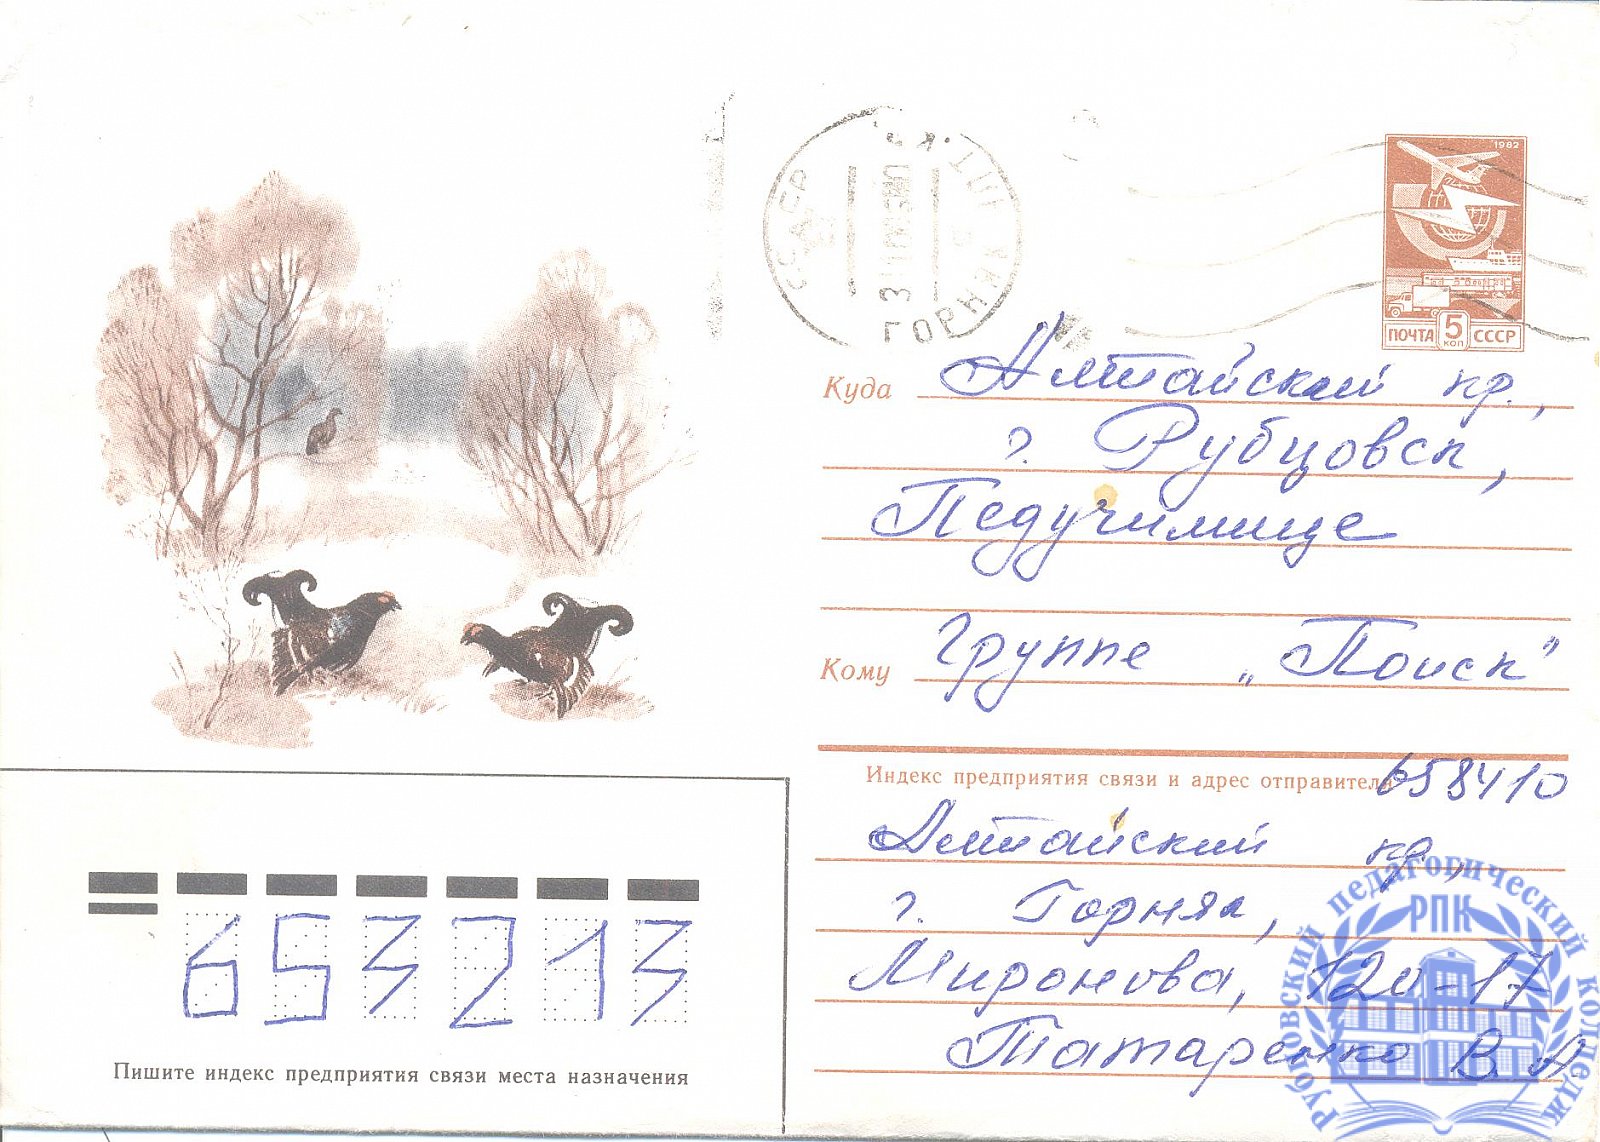 СССР
АЛТ. КР.
ГОРНЯК
1982
ПОЧТА 5 КОП СССР
Куда Алтайский кр.,
г. Рубцовск,
Педучилище
Кому Группе „Поиск"
Индекс предприятия связи и адрес отправителя 658410
Алтайский кр.,
г. Горняк,
Миронова, 120-17
Татаренко В. А.
653213
Пишите индекс предприятия связи места назначения
Рубцовский педагогический колледж
РПК